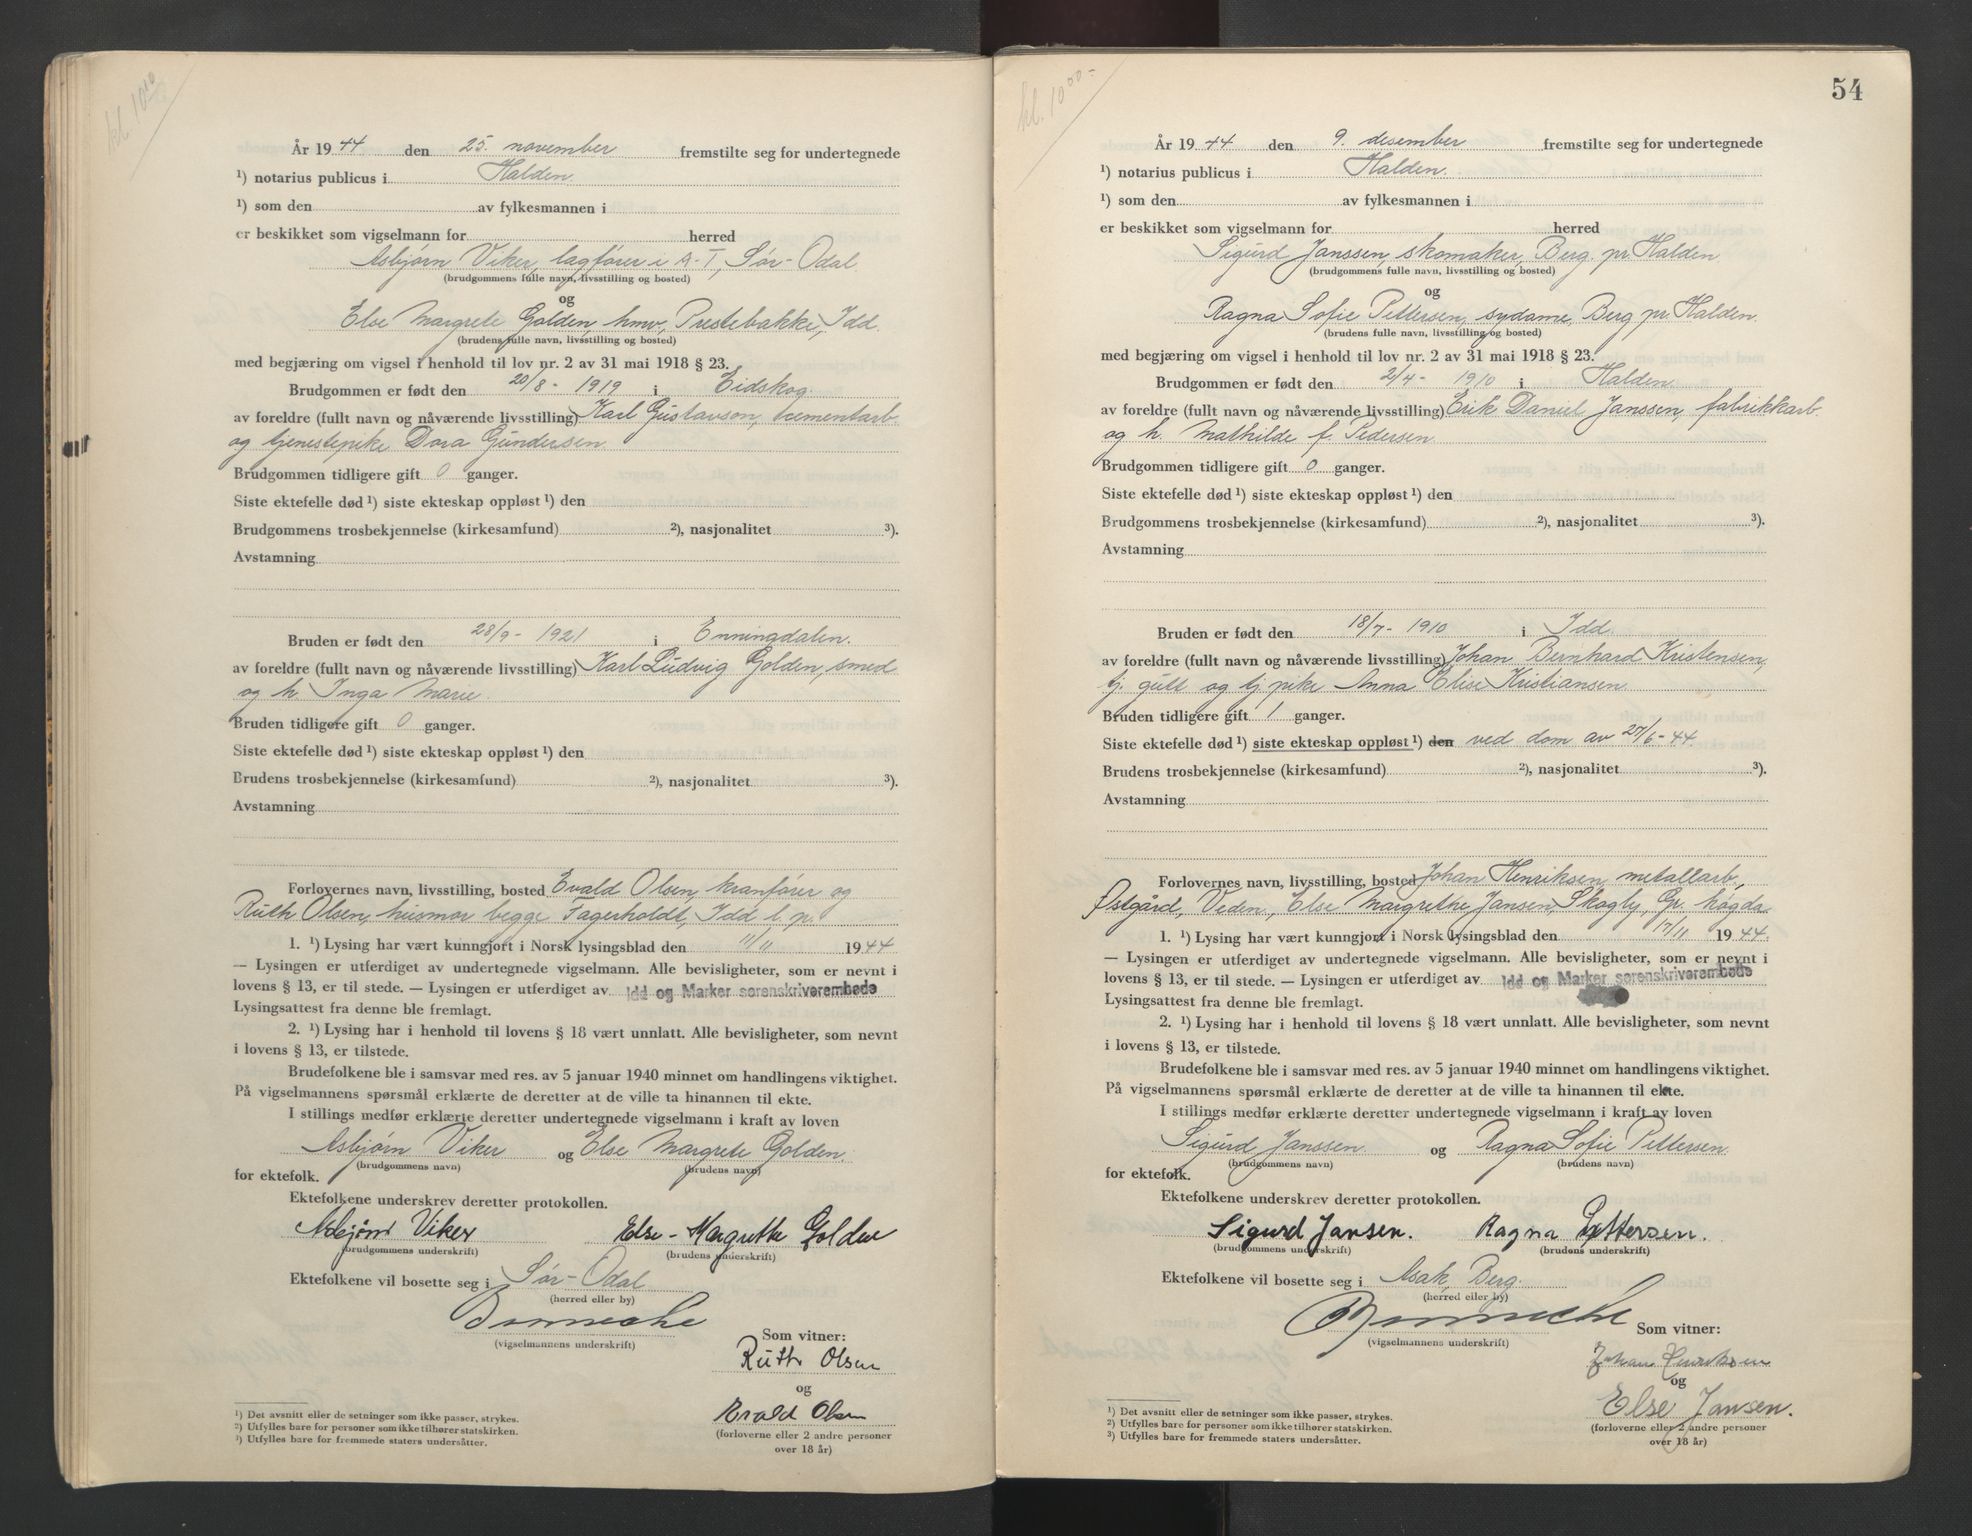 kl. 10
År 1944 den 25. november fremstilte seg for undertegnede
¹) notarius publicus i Halden.
¹) som den av fylkesmannen i
er beskikket som vigselmann for herred
Asbjørn Viker, lagfører i A-T, Sør-Odal
(brudgommens fulle navn, livsstilling og bosted)
og
Else Margrete Golden, hmv., Prestebakke, Idd.
(brudens fulle navn, livsstilling og bosted)
med begjæring om vigsel i henhold til lov nr. 2 av 31 mai 1918 § 23.
Brudgommen er født den 20/8 - 1919 i Eidskog.
av foreldre (fullt navn og nåværende livsstilling) Karl Gustavson, cementarb.
og tjenestepike Dora Gundersen
Brudgommen tidligere gift 0 ganger.
Siste ektefelle død ¹) siste ekteskap oppløst ¹) den
Brudgommens trosbekjennelse (kirkesamfund) ²), nasjonalitet ³).
Avstamning
Bruden er født den 28/9 - 1921 i Enningdalen.
av foreldre (fullt navn og nåværende livsstilling) Karl Ludvig Golden, smed
og h. Inga Marie.
Bruden tidligere gift 0 ganger.
Siste ektefelle død ¹) siste ekteskap oppløst ¹) den
Brudens trosbekjennelse (kirkesamfund) ²), nasjonalitet ³).
Avstamning
Forlovernes navn, livsstilling, bosted Evald Olsen, kranfører og
Ruth Olsen, husmor begge Fagerholdt, Idd l. p.
1. ¹) Lysing har vært kunngjort i Norsk lysingsblad den 11/11 1944
— Lysingen er utferdiget av undertegnede vigselmann. Alle bevisligheter, som er nevnt i
lovens § 13, er til stede. — Lysingen er utferdiget av Idd og Marker sorenskriverembede
Lysingsattest fra denne ble fremlagt.
2. ¹) Lysing har i henhold til lovens § 18 vært unnlatt. Alle bevisligheter, som nevnt
i lovens § 13, er tilstede.
Brudefolkene ble i samsvar med res. av 5 januar 1940 minnet om handlingens viktighet.
På vigselmannens spørsmål erklærte de deretter at de ville ta hinannen til ekte.
I stillings medfør erklærte deretter undertegnede vigselmann i kraft av loven
Asbjørn Viker og Else Margrete Golden
(brudgommens navn) (brudens navn)
for ektefolk.
Ektefolkene underskrev deretter protokollen.
Asbjørn Viker Else-Margrethe Golden
(brudgommens underskrift) (brudens underskrift)
Ektefolkene vil bosette seg i Sør-Odal
(herred eller by)
(vigselmannens underskrift)
Som vitner:
Ruth Olsen
og
Evald Olsen
(forloverne eller 2 andre personer
over 18 år)
¹) Det avsnitt eller de setninger som ikke passer, strykes.
²) Utfylles bare for personer som ikke tilhører statskirken.
³) Utfylles bare for fremmede staters undersåtter.
54
kl. 10 00 -
År 1944 den 9. desember fremstilte seg for undertegnede
¹) notarius publicus i Halden.
¹) som den av fylkesmannen i
er beskikket som vigselmann for herred
Sigurd Janssen, skomaker, Berg. pr Halden
(brudgommens fulle navn, livsstilling og bosted)
og
Ragna Sofie Pettersen, sydame, Berg pr. Halden.
(brudens fulle navn, livsstilling og bosted)
med begjæring om vigsel i henhold til lov nr. 2 av 31 mai 1918 § 23.
Brudgommen er født den 2/4 - 1910 i Halden.
av foreldre (fullt navn og nåværende livsstilling) Erik Daniel Janssen, fabrikkarb.
og h. Mathilde f. Pedersen
Brudgommen tidligere gift 0 ganger.
Siste ektefelle død ¹) siste ekteskap oppløst ¹) den
Brudgommens trosbekjennelse (kirkesamfund) ²), nasjonalitet ³).
Avstamning
Bruden er født den 18/7 - 1910 i Idd.
av foreldre (fullt navn og nåværende livsstilling) Johan Bernhard Kristensen,
tj. gutt og tj pike Anna Elise Kristiansen
Bruden tidligere gift 1 ganger.
Siste ektefelle død ¹) siste ekteskap oppløst ¹) den ved dom av 27/6-44.
Brudens trosbekjennelse (kirkesamfund) ²), nasjonalitet ³).
Avstamning
Forlovernes navn, livsstilling, bosted Johan Henriksen, metallarb.,
Østgård, Veden, Else Margrethe Jansen, Skogly, Gr. høgda
1. ¹) Lysing har vært kunngjort i Norsk lysingsblad den 17/11 1944.
— Lysingen er utferdiget av undertegnede vigselmann. Alle bevisligheter, som er nevnt i
lovens § 13, er til stede. — Lysingen er utferdiget av Idd og Marker sorenskriverembede
Lysingsattest fra denne ble fremlagt.
2. ¹) Lysing har i henhold til lovens § 18 vært unnlatt. Alle bevisligheter, som nevnt
i lovens § 13, er tilstede.
Brudefolkene ble i samsvar med res. av 5 januar 1940 minnet om handlingens viktighet.
På vigselmannens spørsmål erklærte de deretter at de ville ta hinannen til ekte.
I stillings medfør erklærte deretter undertegnede vigselmann i kraft av loven
Sigurd Janssen og Ragna Sofie Pettersen
(brudgommens navn) (brudens navn)
for ektefolk.
Ektefolkene underskrev deretter protokollen.
Sigurd Jansen. Ragna Pettersen.
(brudgommens underskrift) (brudens underskrift)
Ektefolkene vil bosette seg i Asak, Berg.
(herred eller by)
(vigselmannens underskrift)
Som vitner:
Johan Henriksen
og
Else Jansen.
(forloverne eller 2 andre personer
over 18 år)
¹) Det avsnitt eller de setninger som ikke passer, strykes.
²) Utfylles bare for personer som ikke tilhører statskirken.
³) Utfylles bare for fremmede staters undersåtter.